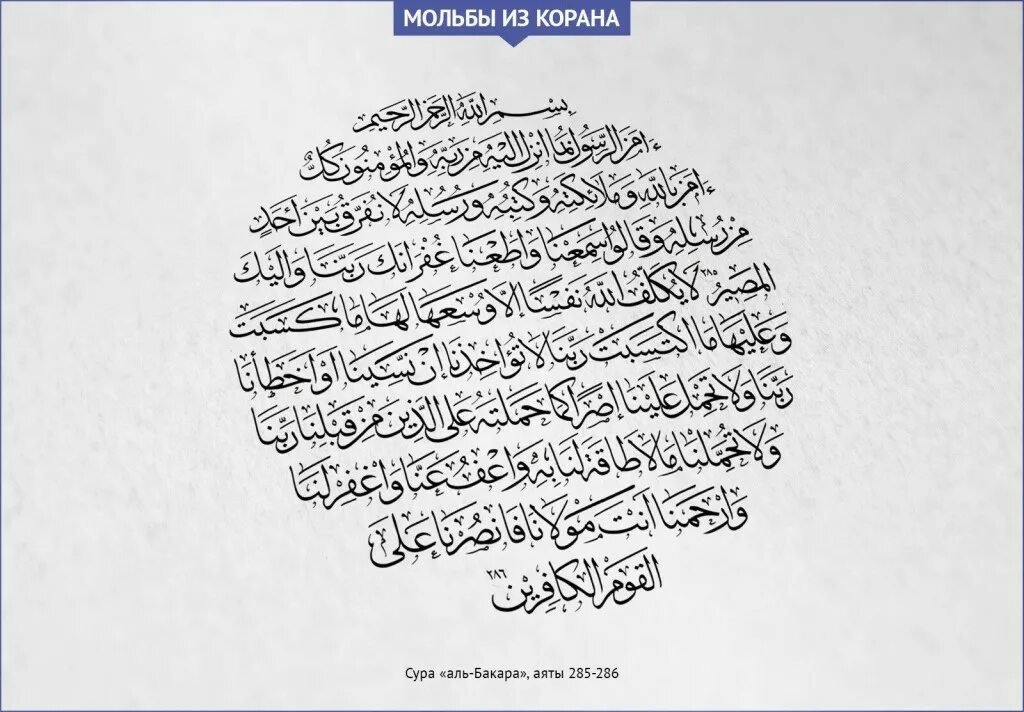 МОЛЬБЫ ИЗ КОРАНА
بسم الله الرحمن الرحيم
ءامن الرسول بما انزل اليه من ربه والمؤمنون كل
ءامن بالله وملائكته وكتبه ورسله لا نفرق بين احد
من رسله وقالوا سمعنا واطعنا غفرانك ربنا واليك
المصير ٢٨٥ لا يكلف الله نفسا الا وسعها لها ما كسبت
وعليها ما اكتسبت ربنا لا تؤاخذنا إن نسينا أو اخطأنا
ربنا ولا تحمل علينا إصرا كما حملته على الذين من قبلنا ربنا
ولا تحملنا ما لا طاقة لنا به واعف عنا واغفر لنا
وارحمنا انت مولانا فانصرنا على
القوم الكافرين ٢٨٦
Сура «аль-Бакара», аяты 285-286